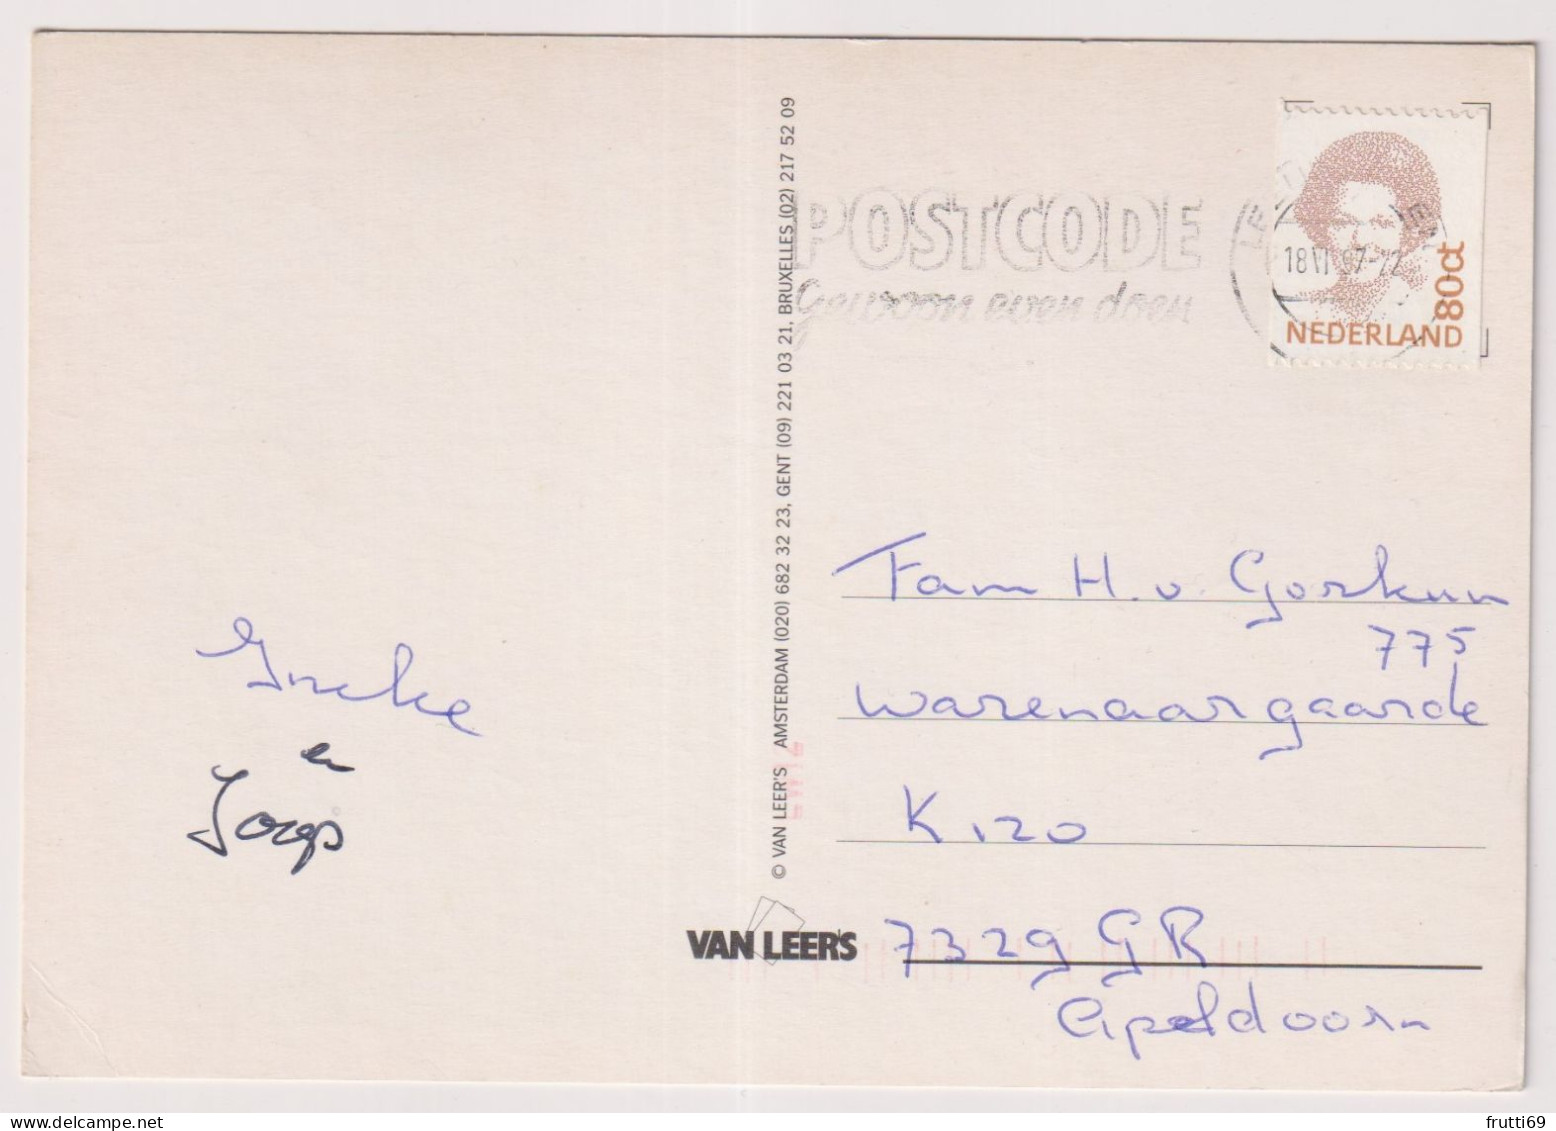 Ineke
en
Joop
© VAN LEER'S AMSTERDAM (020) 682 32 23, GENT (09) 221 03 21, BRUXELLES (02) 217 52 09
VAN LEER'S
POSTCODE
Gewoon even doen
18 VI 97-22
80ct
NEDERLAND
Fam H. v. Gorkum
775
Warenaargaarde
K 120
7329 GR
Apeldoorn
frutti69